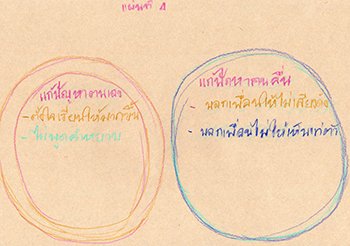 แผ่นที่ 4
แก้ปัญหาตนเอง
- ตั้งใจเรียนให้มากขึ้น
- ไม่พูดคำหยาบ
แก้ปัญหาคนอื่น
- บอกเพื่อนให้ไม่เสียงดัง
- บอกเพื่อนไม่ให้เห็นแก่ตัว